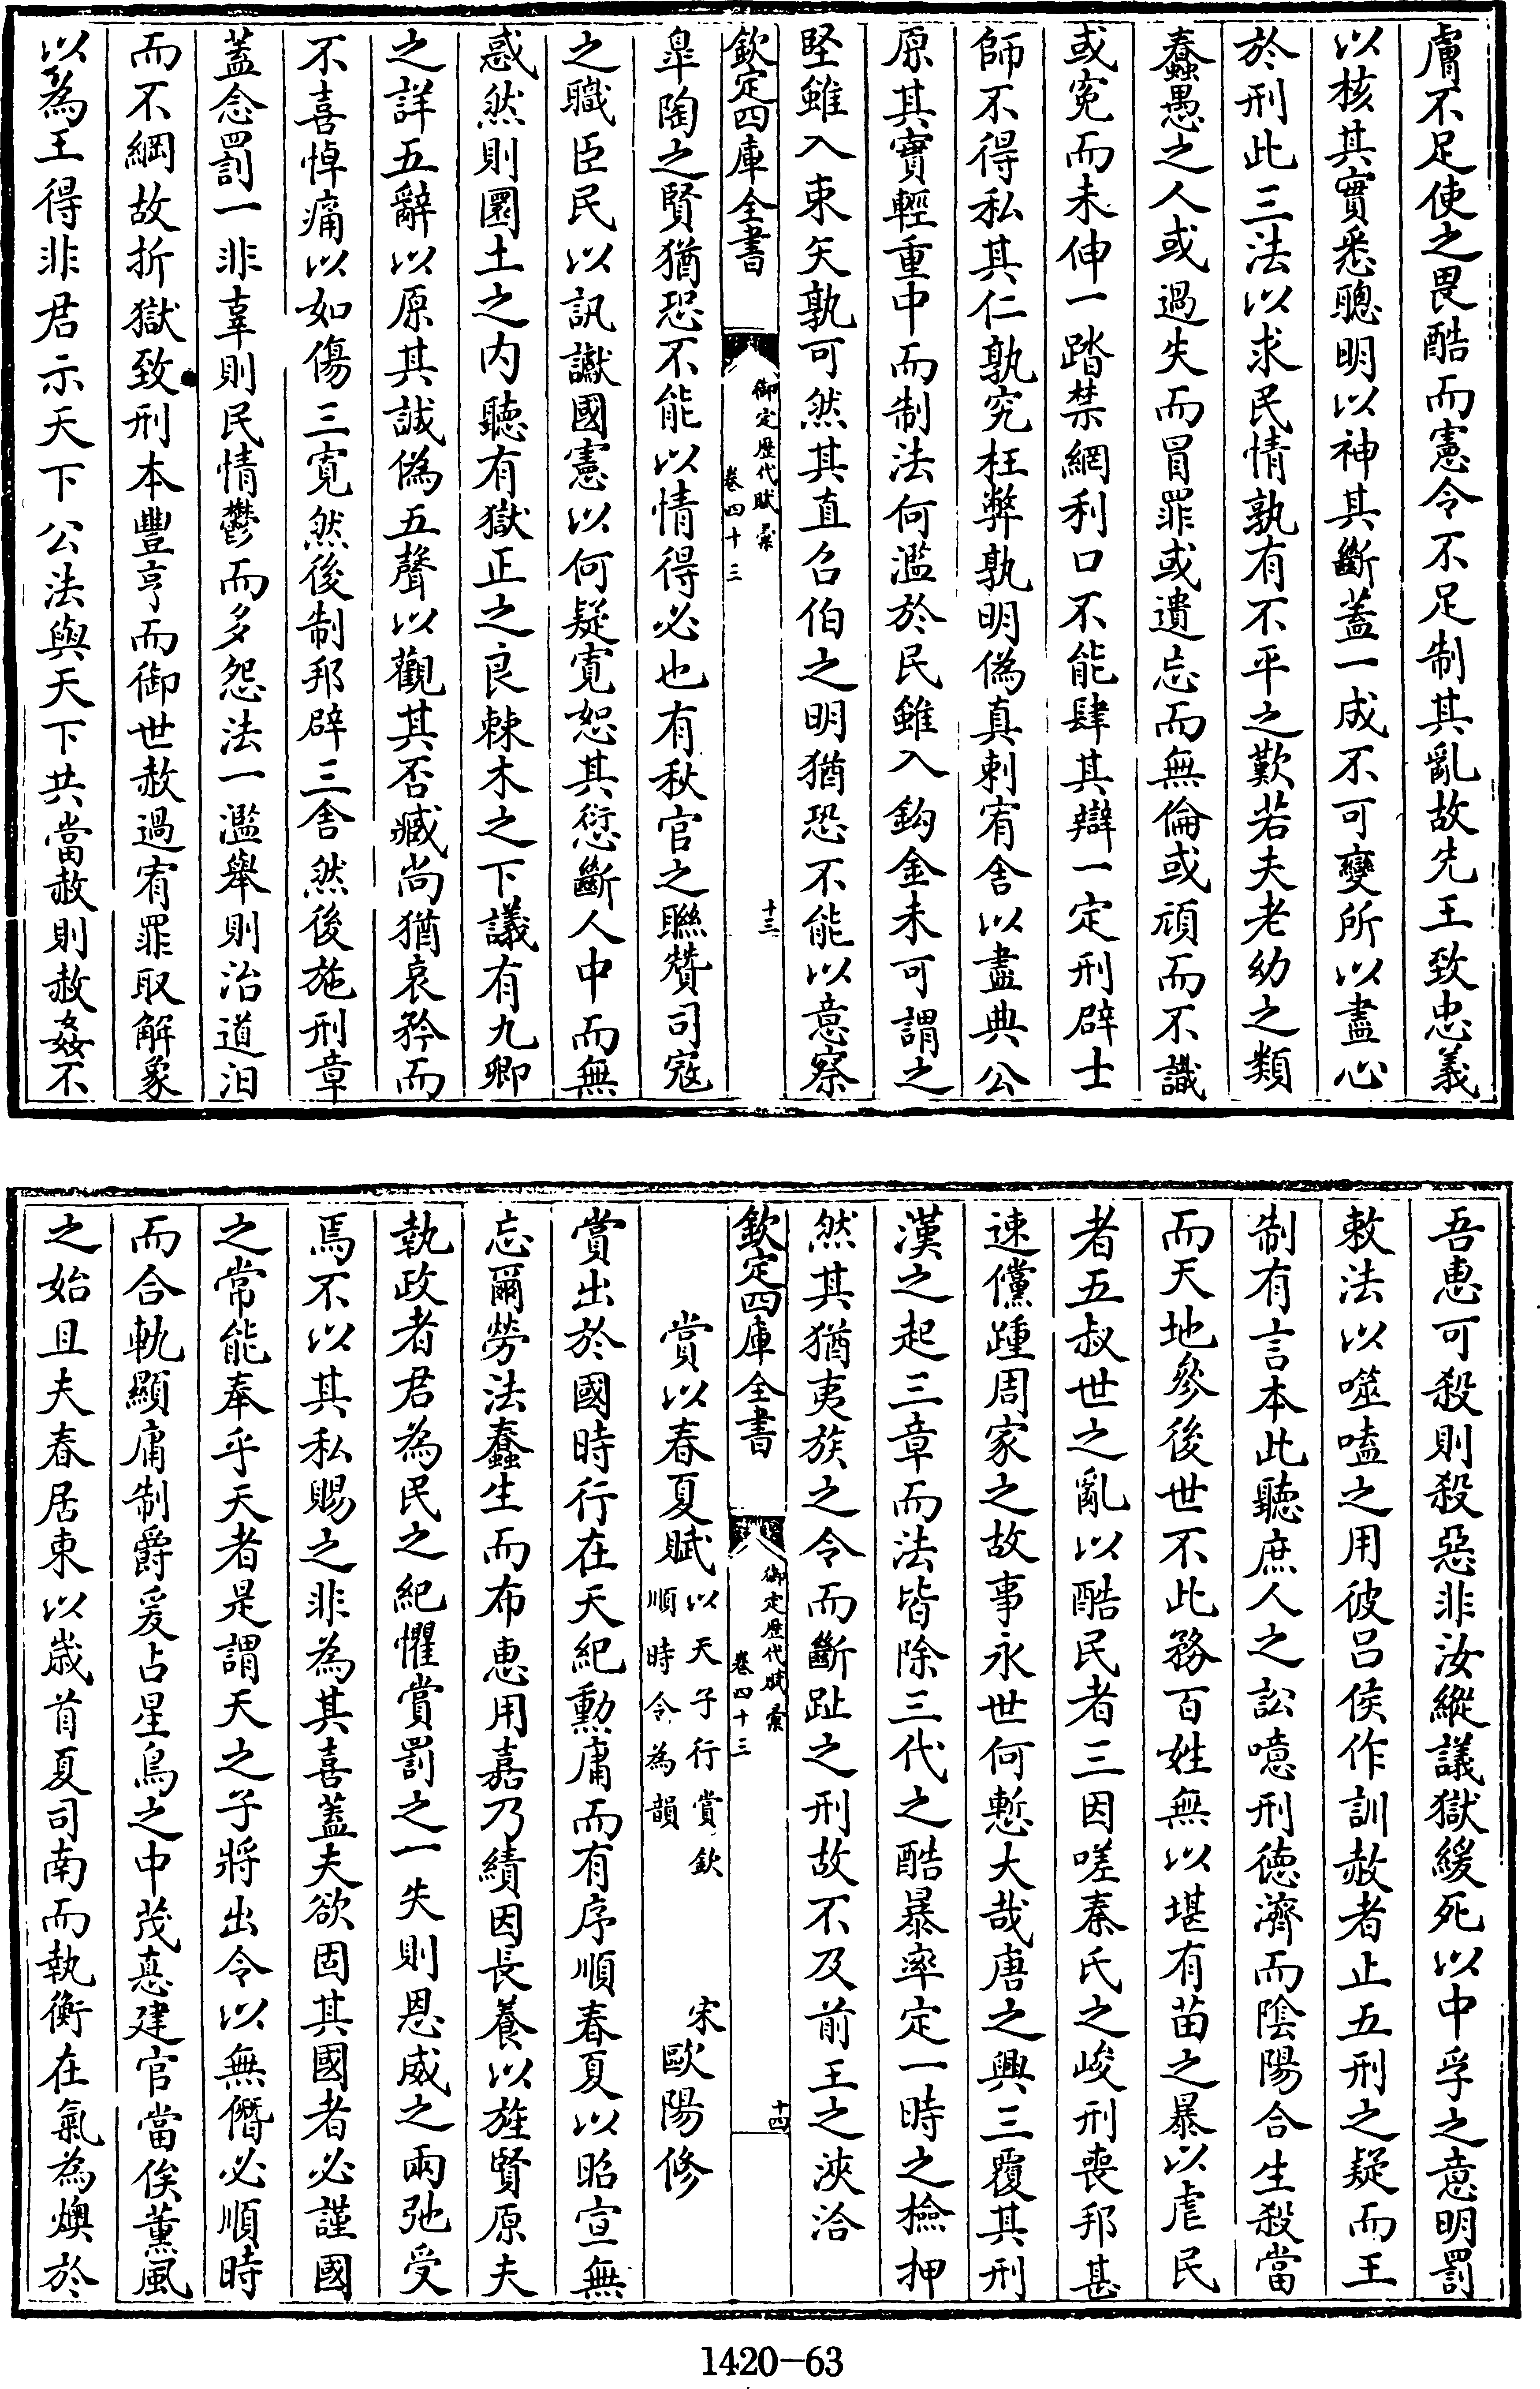 膚不足使之畏酷而憲令不足制其亂故先王致忠義
以核其實悉聰明以神其斷蓋一成不可變所以盡心
於刑此三法以求民情孰有不平之歎若夫老幼之類
蠢愚之人或過失而冒罪或遺忘而無倫或頑而不識
或寃而未伸一踏禁網利口不能肆其辯一定刑辟士
師不得私其仁孰究枉弊孰明偽真刺宥舍以盡典公
原其實輕重中而制法何濫於民雖入鈎金未可謂之
堅雖入束矢孰可然其直召伯之明猶恐不能以意察
欽定四庫全書
御定歴代賦彙
卷四十三
十三
臯陶之賢猶恐不能以情得必也有秋官之聯贊司寇
之職臣民以訊讞國憲以何疑寛恕其愆斷人中而無
惑然則圜土之内聽有獄正之良棘木之下議有九卿
之詳五辭以原其誠偽五聲以觀其否臧尚猶哀矜而
不喜悼痛以如傷三寛然後制邦辟三舍然後施刑章
蓋念罰一非辜則民情鬱而多怨法一濫舉則治道汨
而不綱故折獄致刑本豐亨而御世赦過宥罪取解象
以為王得非君示天下公法與天下共當赦則赦姦不
吾恵可殺則殺惡非汝縱議獄緩死以中孚之意明罰
敕法以噬嗑之用彼吕侯作訓赦者止五刑之疑而王
制有言本此聽庶人之訟噫刑徳濟而陰陽合生殺當
而天地參後世不此務百姓無以堪有苗之暴以虐民
者五叔世之亂以酷民者三因嗟秦氏之峻刑喪邦甚
速儻踵周家之故事永世何慙大哉唐之興三覆其刑
漢之起三章而法皆除三代之酷暴率定一時之檢押
然其猶夷族之令而斷趾之刑故不及前王之浹洽
欽定四庫全書
御定歴代賦彙
卷四十三
十四
賞以春夏賦 以天子行賞欽順時令為韻 宋歐陽修
賞出於國時行在天紀勲庸而有序順春夏以昭宣無
忘爾勞法蠢生而布恵用嘉乃績因長養以旌賢原夫
執政者君為民之紀懼賞罰之一失則恩威之兩弛受
焉不以其私賜之非為其喜蓋夫欲固其國者必謹國
之常能奉乎天者是謂天之子將出令以無僭必順時
而合軌顯庸制爵爰占星鳥之中茂惪建官當俟薰風
之始且夫春居東以嵗首夏司南而執衡在氣為燠於
1420-63